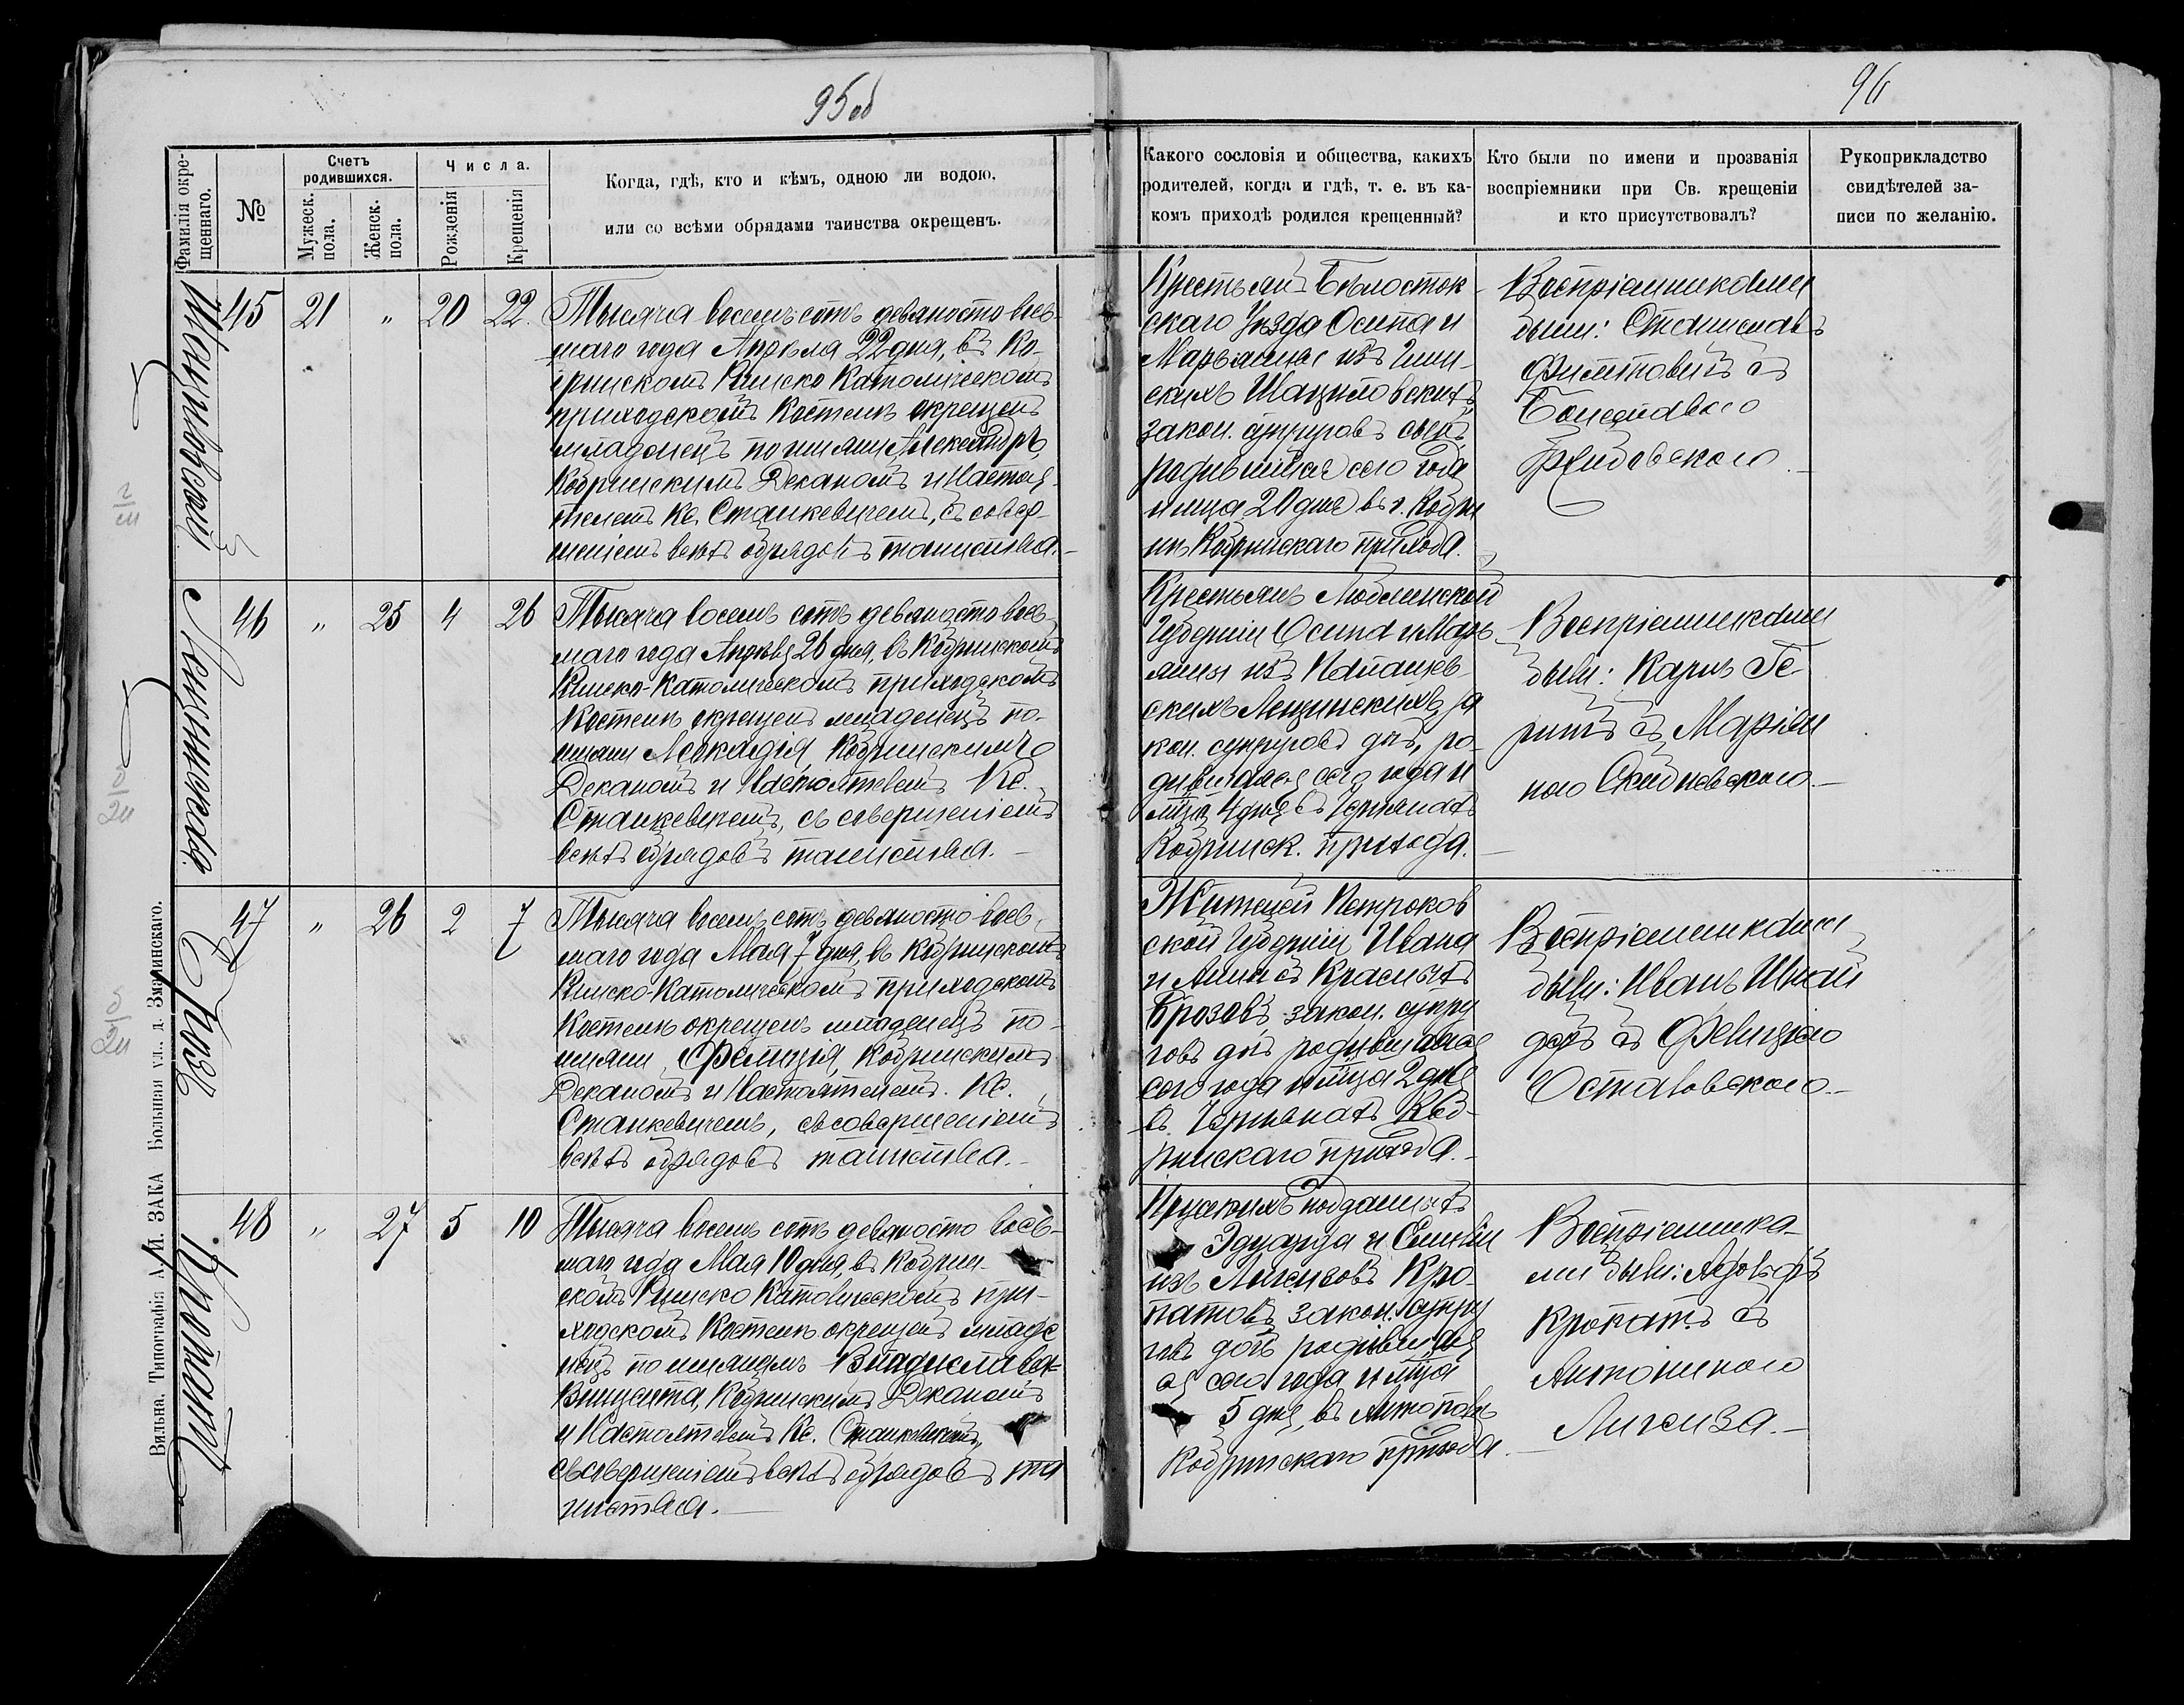 95об
96
Фамилія окре-
щеннаго.
№
Счетъ
родившихся.
Мужеск.
пола.
Женск.
пола.
Числа.
Рожденія
Крещенія
Когда, гдѣ, кто и кѣмъ, одною ли водою,
или со всѣми обрядами таинства окрещенъ.
Какого сословія и общества, какихъ
родителей, когда и гдѣ, т. е. въ ка-
комъ приходѣ родился крещенный?
Кто были по имени и прозванія
воспріемники при Св. крещеніи
и кто присутствовалъ?
Рукоприкладство
свидѣтелей за-
писи по желанію.
45 21 " 20 22.
Тысяча восемьсотъ девяносто вось-
маго года Апрѣля 22 дня, въ Ко-
бринскомъ Римско Католическомъ
приходскомъ Костелѣ окрещенъ
младенецъ по имени Александръ,
Кобринскимъ Деканомъ и Настоя-
телемъ Кс. Станкевичемъ, съ совер-
шеніемъ всѣхъ обрядовъ таинства.
Крестьянъ Бѣлосток-
скаго Уѣзда Осипа и
Марьянны изъ
закон. супруговъ сынъ,
родившійся сего года
и мца 20 дня въ г. Кобри
нѣ Кобринскаго прихода.
Воспріемниками
были: Станиславъ
съ
46 " 25 4 26
Тысяча восемь сотъ девяносто вось-
маго года Апрѣля 26 дня, въ Кобринскомъ
Римско-Католическомъ приходскомъ
Костелѣ окрещенъ младенецъ по-
имени Леокадія, Кобринскимъ
Деканомъ и Настоятелемъ Кс.
Станкевичемъ, съ совершеніемъ
всѣхъ обрядовъ таинства.
Лещинская
Крестьянъ Люблинской
Губерніи Осипа и Марь-
янны изъ
скихъ Лещинскихъ за
кон. супруговъ дчь, ро-
дившаяся сего года и
мца 4 дня въ
Кобринск. прихода.
Воспріемниками
были: Карлъ Ге
съ Маріан
ною
47 " 26 2 7
Тысяча восемь сотъ девяносто вось-
маго года Мая 7 дня, въ Кобринскомъ
Римско-Католическомъ приходскомъ
Костелѣ окрещенъ младенецъ по-
имени Фелиція, Кобринскимъ
Деканомъ и Настоятелемъ. Кс.
Станкевичемъ, съ совершеніемъ
всѣхъ обрядовъ таинства.
Брозъ
Жителей Петроков
ской Губерніи Ивана
и Анны съ
Брозовъ закон. супру
говъ дчь родившаяся
сего года и мца 2 дня
въ Коб-
ринскаго прихода.
Воспріемниками
были: Иванъ
съ Фелиціею
Оставовскою.
48 " 27 5 10
Тысяча восемь сотъ девяносто вось-
маго года Мая 10 дня, въ Кобрин-
скомъ Римско Католическомъ при-
ходскомъ Костелѣ окрещенъ младе
нецъ по именамъ Владислава-
Винцента, Кобринскимъ Деканомъ
и Настоятелемъ Кс. Станкевичемъ,
съ совершеніемъ всѣхъ обрядовъ та
инства.
Кропатъ
Прускихъ подданныхъ
Эдуарда и Эмиліи
изъ Лигизовъ Кро-
патовъ закон. супру
говъ дочь родивша
яся сего года и мца
5 дня, въ Антополѣ
Кобринскаго прихода.
Воспріемника-
ми были: Адольфъ
Кропатъ съ
Антониною
Лигиза.
Вильна. Типографія А. И. ЗАКА Большая ул., д. Змачинскаго.